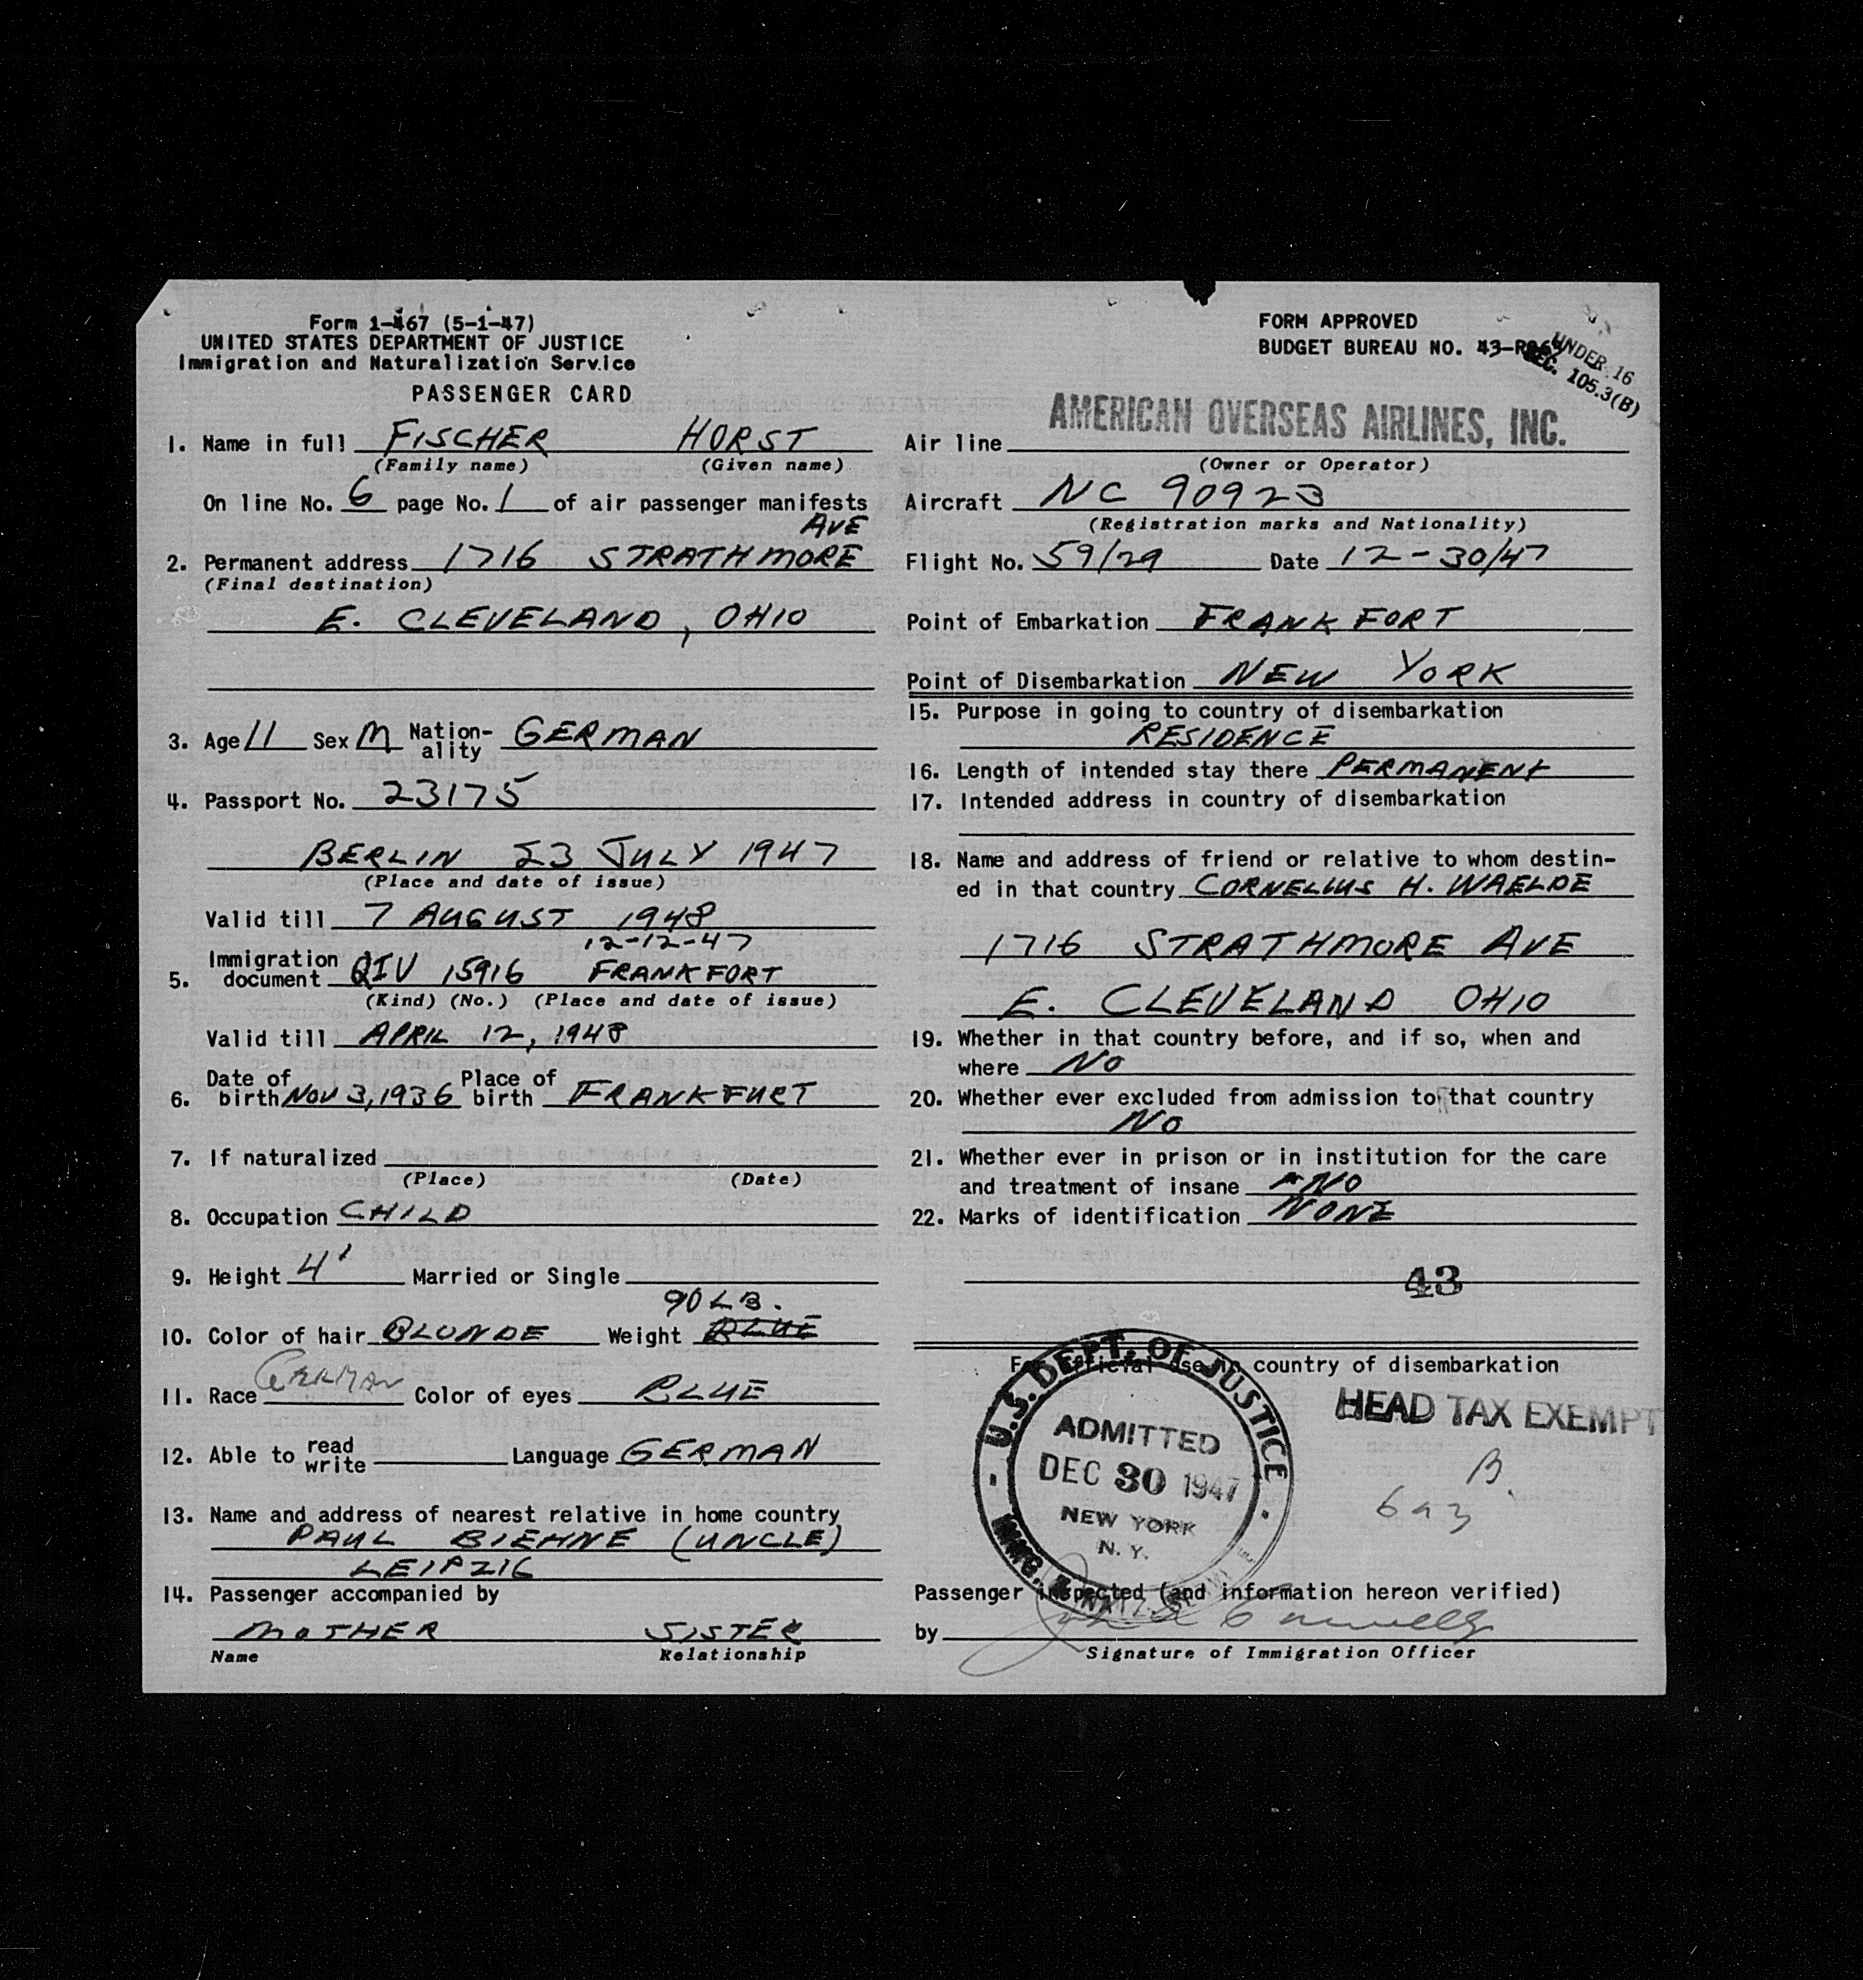 Form 1-467 (5-1-47)
UNITED STATES DEPARTMENT OF JUSTICE
Immigration and Naturalization Service
PASSENGER CARD
1. Name in full FISCHER HORST
(Family name) (Given name)
On line No. 6 page No. 1 of air passenger manifests
AVE
2. Permanent address 1716 STRATHMORE
(Final destination)
E. CLEVELAND, OHIO
3. Age 11 Sex M Nation-ality GERMAN
4. Passport No. 23175
BERLIN 23 JULY 1947
(Place and date of issue)
Valid till 7 AUGUST 1948
12-12-47
5. Immigration document QIV 15916 FRANKFORT
(Kind) (No.) (Place and date of issue)
Valid till APRIL 12, 1948
6. Date of birth NOV 3, 1936 Place of birth FRANKFURT
7. If naturalized
(Place) (Date)
8. Occupation CHILD
9. Height 4' Married or Single
90 LB.
10. Color of hair BLONDE Weight BLUE
11. Race GERMAN Color of eyes BLUE
12. Able to read write Language GERMAN
13. Name and address of nearest relative in home country
PAUL BIEHNE (UNCLE)
LEIPZIG
14. Passenger accompanied by
MOTHER SISTER
Name Relationship
FORM APPROVED
BUDGET BUREAU NO. 43-
UNDER 16
SEC. 105.3(B)
AMERICAN OVERSEAS AIRLINES, INC.
Air line
(Owner or Operator)
Aircraft NC 90923
(Registration marks and Nationality)
Flight No. 59/29 Date 12-30/47
Point of Embarkation FRANKFORT
Point of Disembarkation NEW YORK
15. Purpose in going to country of disembarkation
RESIDENCE
16. Length of intended stay there PERMANENT
17. Intended address in country of disembarkation
18. Name and address of friend or relative to whom destin-
ed in that country CORNELIUS H. WAELDE
1716 STRATHMORE AVE
E. CLEVELAND OHIO
19. Whether in that country before, and if so, when and
where NO
20. Whether ever excluded from admission to that country
NO
21. Whether ever in prison or in institution for the care
and treatment of insane NO
22. Marks of identification NONE
43
For official use in country of disembarkation
U.S. DEPT. OF JUSTICE
ADMITTED
DEC 30 1947
NEW YORK
N. Y.
HEAD TAX EXEMPT
B.
Passenger inspected (and information hereon verified)
by
Signature of Immigration Officer